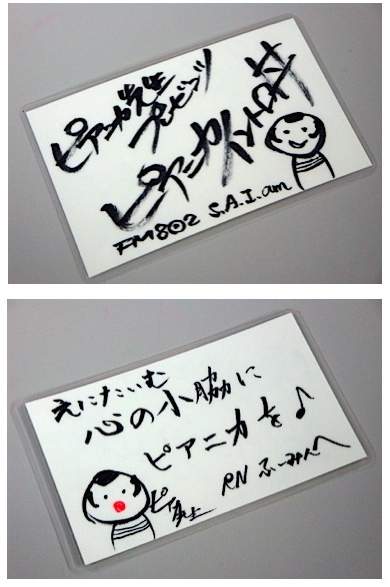 ピアニカ先生
プレゼンツ
ピアニカ
FM802 S.A.I.am
えにたいむ
心の小脇に
ピアニカを♪
ピアニカ先生
RN ふーみんへ